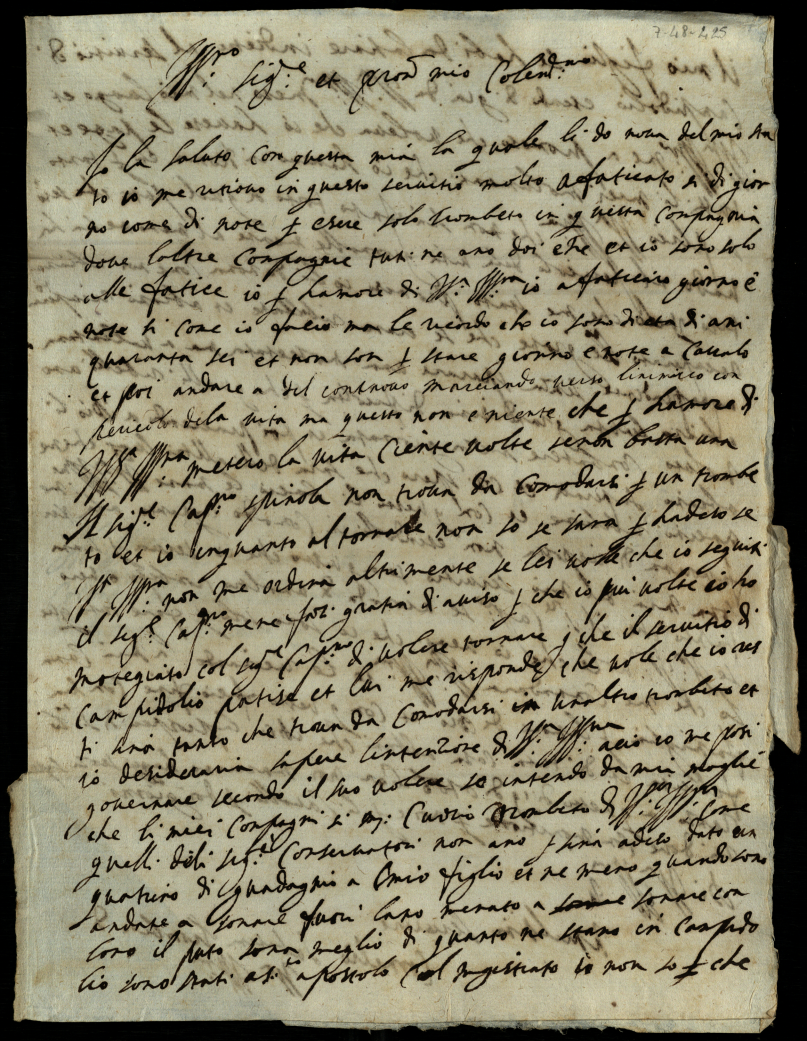 7-48-225
Ill.mo Sig.re et Pron mio Colend.mo
Io la saluto con questa mia la quale li do nova del mio sta
to io me ritrovo in questo servitio molto afaticato si di gior
no come di note p esere solo trombeto in questa Compagnia
dove laltre Compagnie tuti ne ano doi e tre et io sono solo
alle fatice io p lamore di V.S. Ill.ma io afaticaro giorno e
note si come io facio ma le ricordo che io sono di eta di ani
quaranta sei et non son p stare giorno e note a Cavalo
et poi andare a del continovo marciando verso linimico con
pericolo dela vita ma questo non e niente che p lamore di
V.S. Ill.ma metero la vita Ciente volte senon basta una
Il sig.re Cap.no spinola non trova da Comodarsi p un trombe
to et io inquanto al tornare non so se sara p hadeso se
V.S. Ill.ma non me ordina altrimente se lei vole che io seguiti
il sig.re Cap.no mene faci gratia di aviso p che io piu volte io ho
motegiato col sig.re Cap.no di volere tornare p che il servitio di
Campidolio patise et lui me risponde che vole che io res
ti ana tanto che trova da Comodarsi in unaltro trombeto et
io desideraria sapere lintenzione di V.S. Ill.ma acio io me posi
governare secondo il suo volere so intendo da mia moglie
che li miei Compagni si m. Curtio trombeto di V.S. Ill.ma Come
quelli deli sig.ri Conservatori non ano p sina adeso dato un
quatrino di guadagnio a mio figlio et ne meno quando sono
andate a sonare fuori lano menato a sonare con
loro il puto sona meglio di quanto ne stano in Campido
lio sono stati a s.to apostolo Col magistrato io non so p che